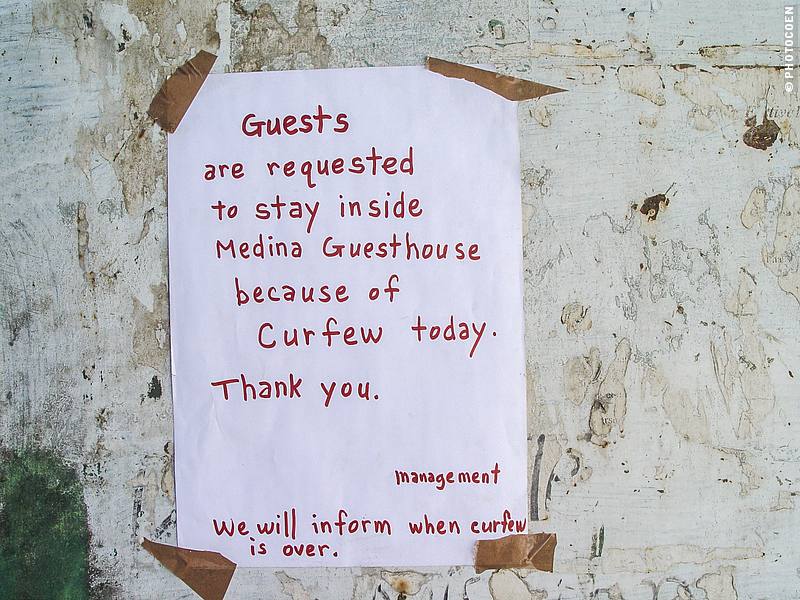 Guests
are requested
to stay inside
Medina Guesthouse
because of
Curfew today.
Thank you.
management
We will inform when curfew
is over.
© PHOTOCOEN